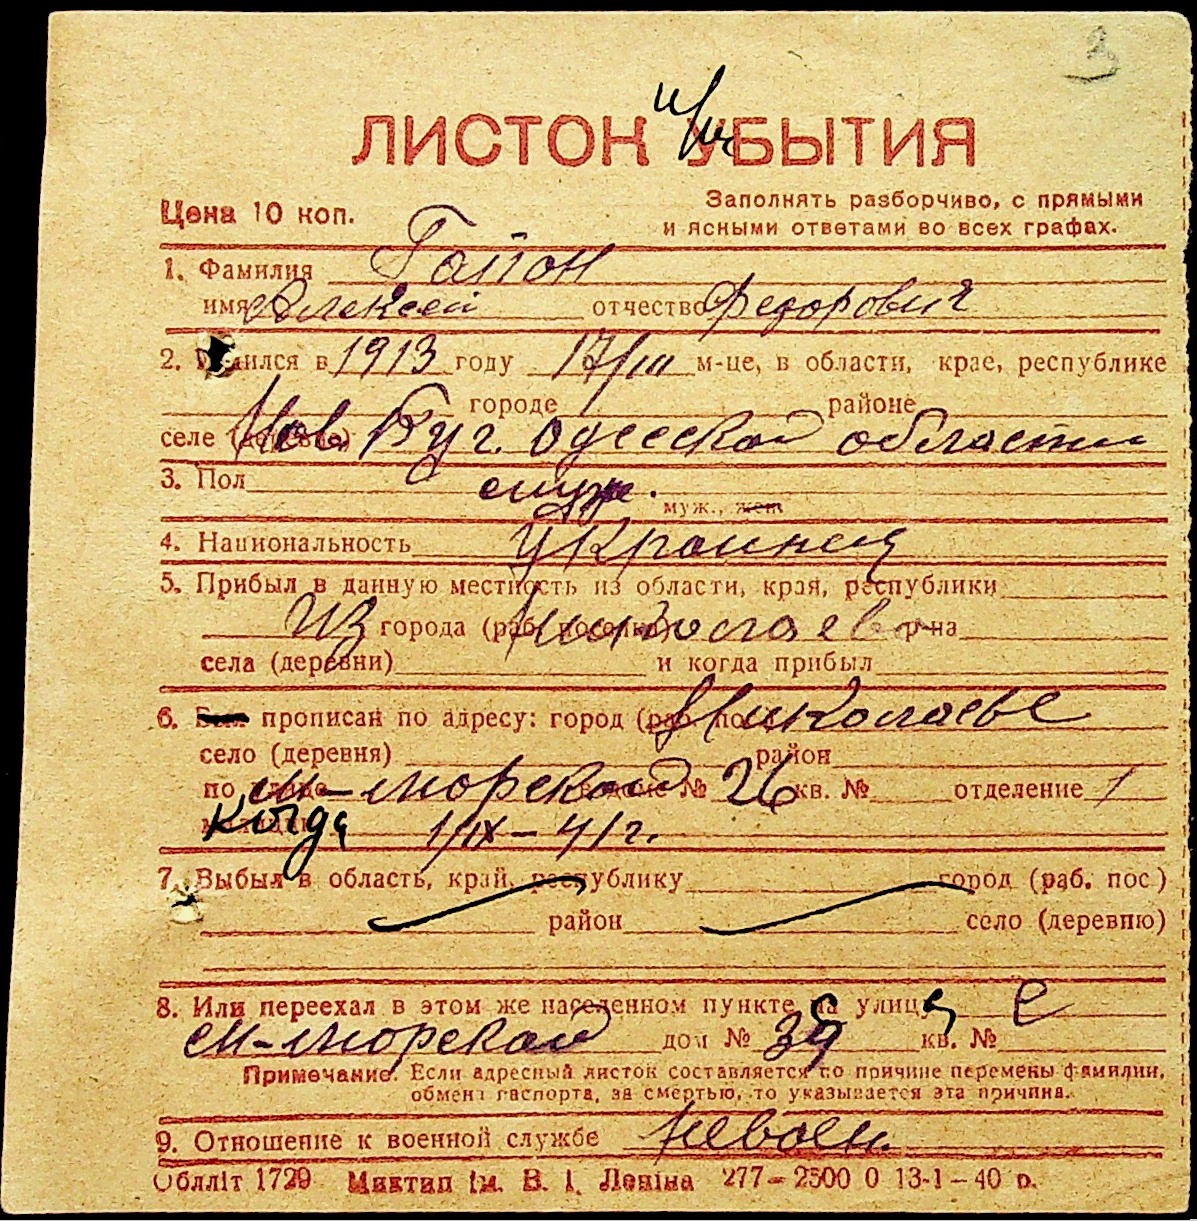 3
ЛИСТОК УБЫТИЯ
Цена 10 коп.
Заполнять разборчиво, с прямыми
и ясными ответами во всех графах.
1. Фамилия Гайон
имя Алексей отчество Федорович
2. Родился в 1913 году 17/III м-це, в области, крае, республике
городе районе
селе (деревне) Нов Буг. Одесской области
3. Пол муж.
муж., жен
4. Национальность Украинец
5. Прибыл в данную местность из области, края, республики
Из города (раб. поселка) Николаева р-на
села (деревни) и когда прибыл
6. Был прописан по адресу: город (раб. пос. Николаеве
село (деревня) район
по улице м-морской в доме № 26 кв. № отделение 1
милиции когда 1/IX – 41 г.
7. Выбыл в область, край, республику город (раб. пос.)
район село (деревню)
8. Или переехал в этом же населенном пункте на улицу с
м-морской дом № 39 кв. №
Примечание. Если адресный листок составляется по причине перемены фамилии,
обмена паспорта, за смертью, то указывается эта причина.
9. Отношение к военной службе невоен.
Облліт 1729 Миктип ім. В. І. Леніна 277–2500 0 13-1–40 р.